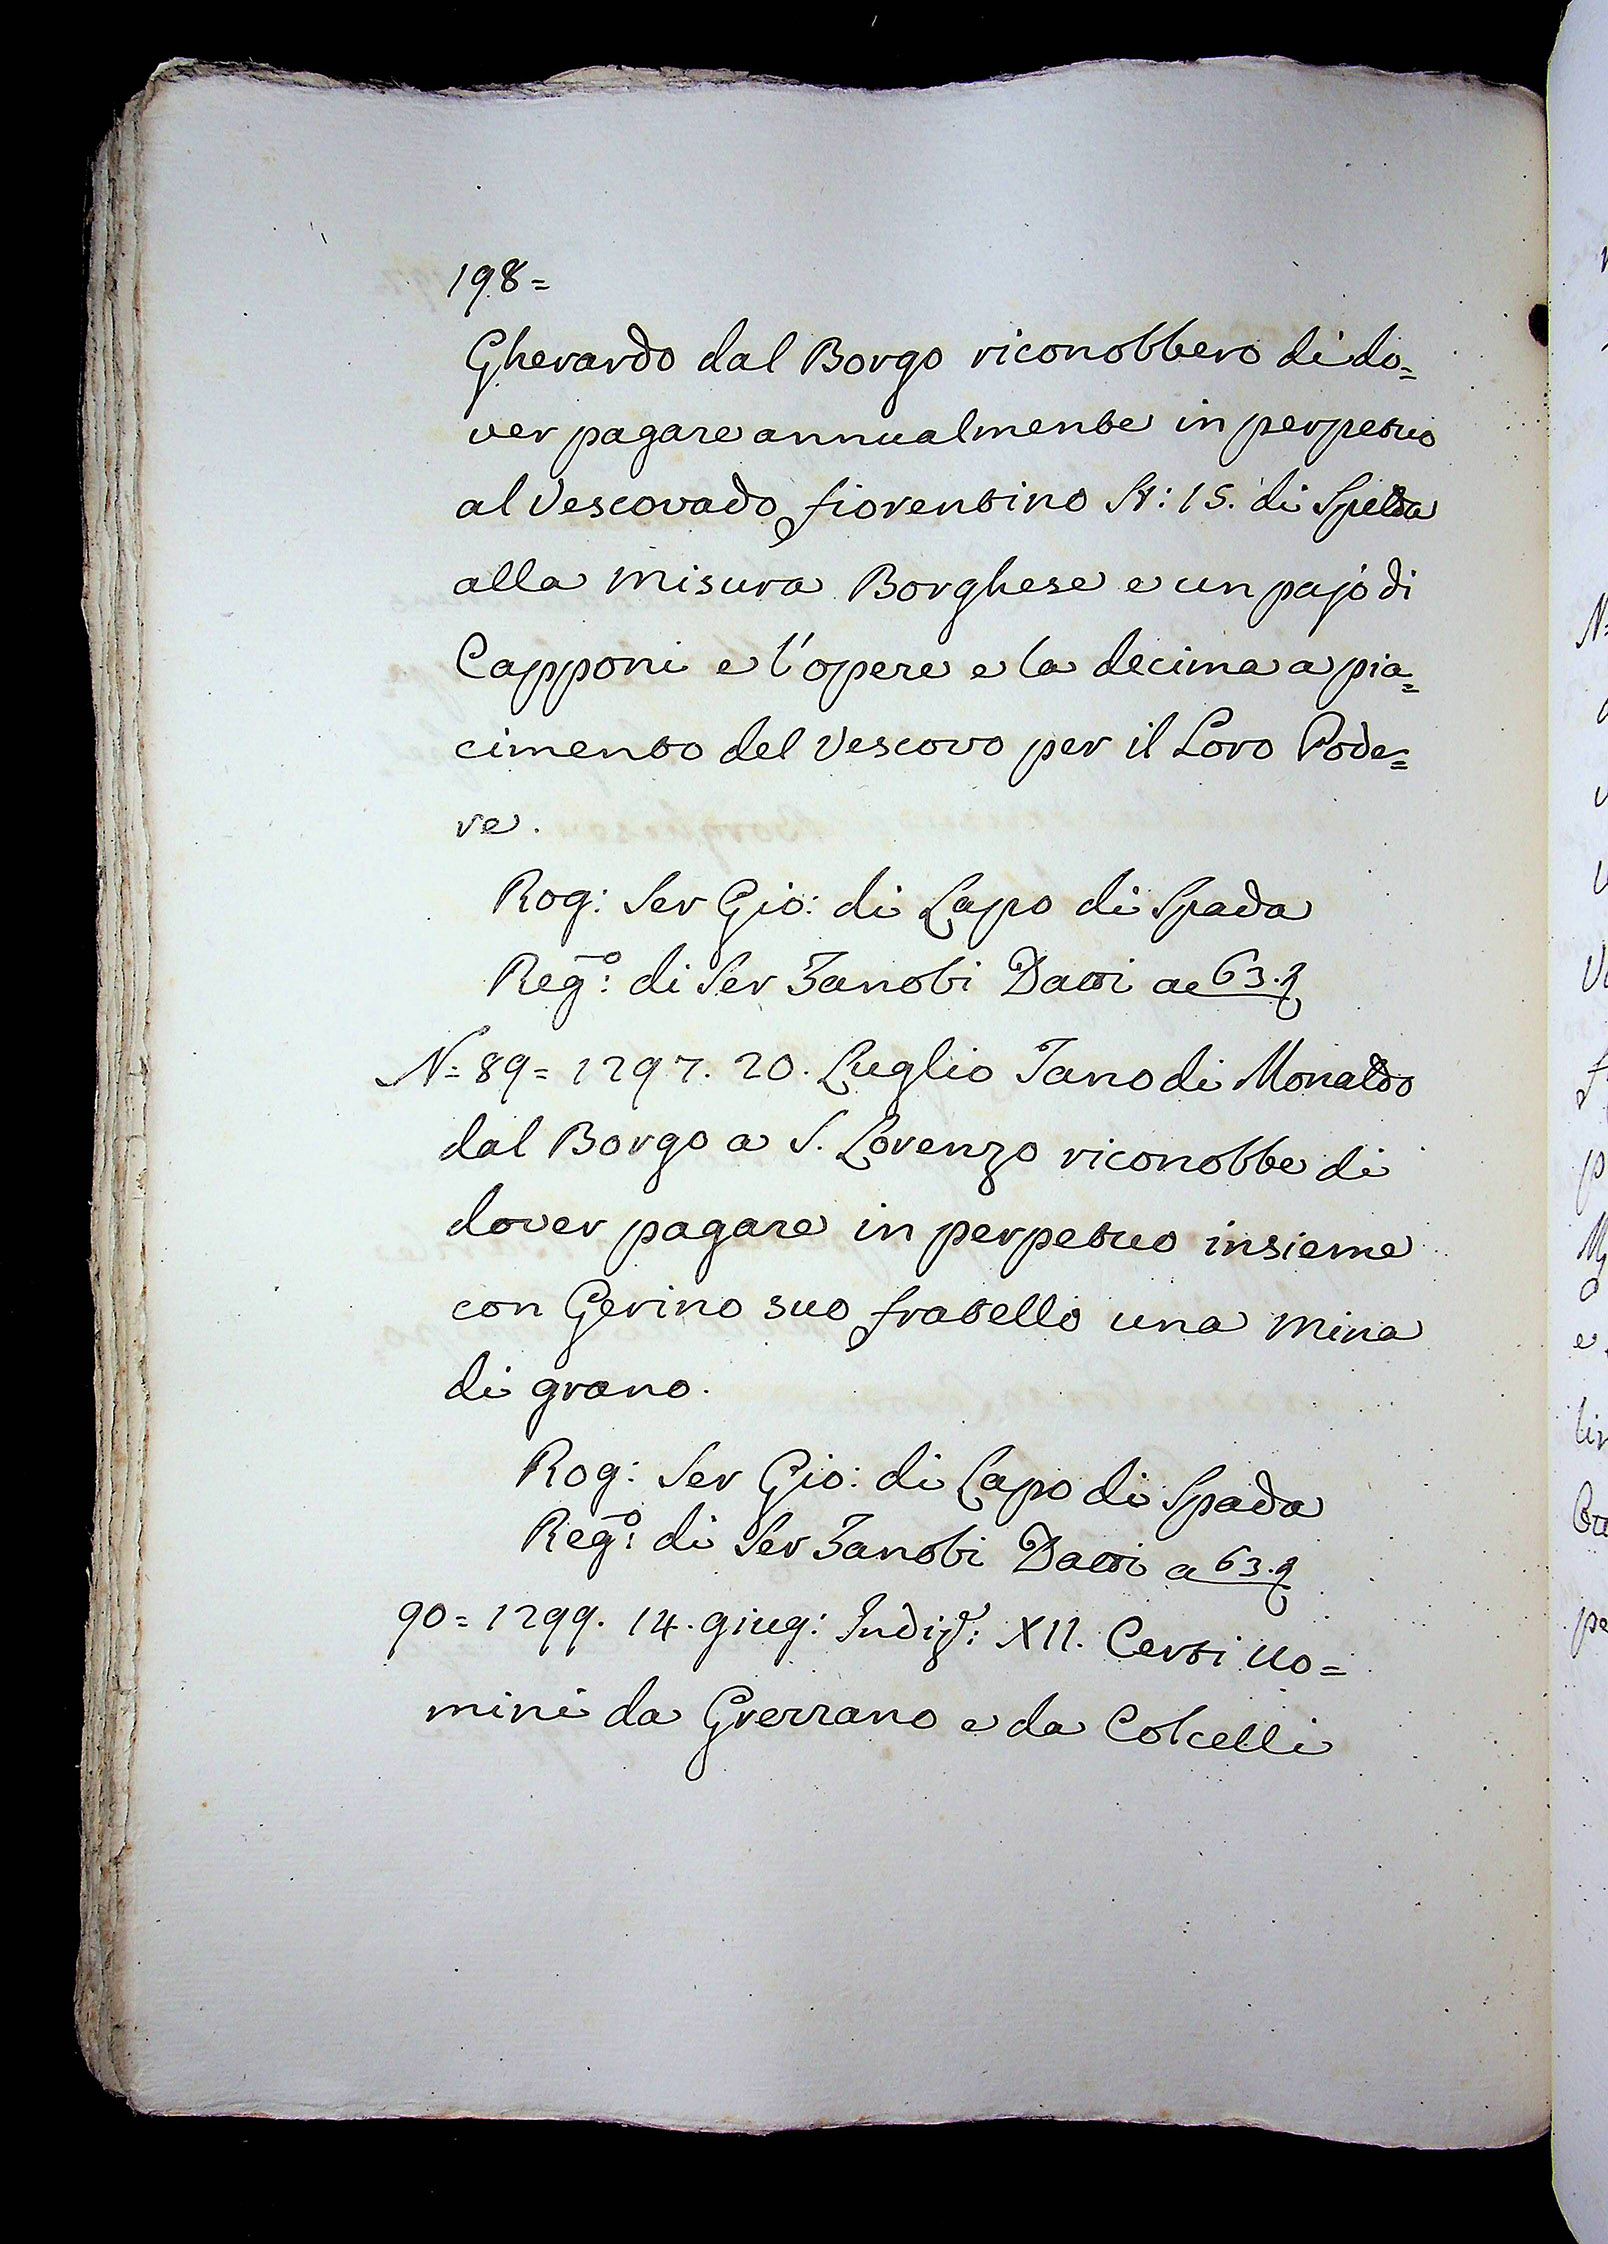 198=
Gherardo dal Borgo riconobbero di do=
ver pagare annualmente in perpetuo
al Vescovado fiorentino St: 15. di Spelda
alla misura Borghese e un pajo di
Capponi e l'opere e la decima a pia=
cimento del Vescovo per il Loro Pode=
re.
Rog: Ser Gio: di Lapo di Spada
Reg.o: di Ser Zanobi Datti ac 63.
N= 89= 1297. 20. Luglio Tano di Monaldo
dal Borgo a S. Lorenzo riconobbe di
dover pagare in perpetuo insieme
con Gerino suo fratello una mina
di grano.
Rog: Ser Gio: di Lapo di Spada
Reg.o: di Ser Zanobi Datti a 63.
90= 1299. 14. giug: Indiz.e: XII. Certi uo=
mini da Grezzano e da Colcelli